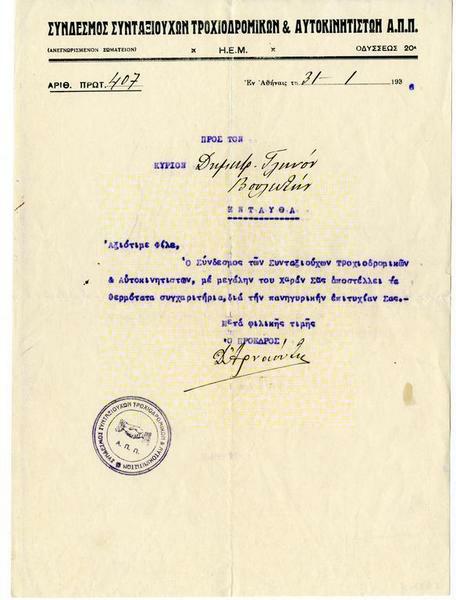 ΣΥΝΔΕΣΜΟΣ ΣΥΝΤΑΞΙΟΥΧΩΝ ΤΡΟΧΙΟΔΡΟΜΙΚΩΝ & ΑΥΤΟΚΙΝΗΤΙΣΤΩΝ Α.Π.Π.
(ΑΝΕΓΝΩΡΙΣΜΕΝΟΝ ΣΩΜΑΤΕΙΟΝ) × Η.Ε.Μ. × ΟΔΥΣΣΕΩΣ 20Α
ΑΡΙΘ. ΠΡΩΤ. 407 Ἐν Ἀθήναις τῇ 31-1 1936
ΠΡΟΣ ΤΟΝ
ΚΥΡΙΟΝ Δημητρ. Γληνόν
Βουλευτήν
ΕΝΤΑΥΘΑ
Ἀξιότιμε Φίλε,
Ὁ Σύνδεσμος τῶν Συνταξιούχων Τροχιοδρομικῶν
& Αὐτοκινητιστῶν, μέ μεγάλην του Χαράν Σᾶς ἀποστέλλει τά
θερμότατα συγχαρητήρια, διά τήν πανηγυρικήν ἐπιτυχίαν Σας.-
Μετά φιλικῆς τιμῆς
Ὁ ΠΡΟΕΔΡΟΣ
ΣΥΝΔΕΣΜΟΣ ΣΥΝΤΑΞΙΟΥΧΩΝ ΤΡΟΧΙΟΔΡΟΜΙΚΩΝ & ΑΥΤΟΚΙΝΗΤΙΣΤΩΝ
Α. Π. Π.